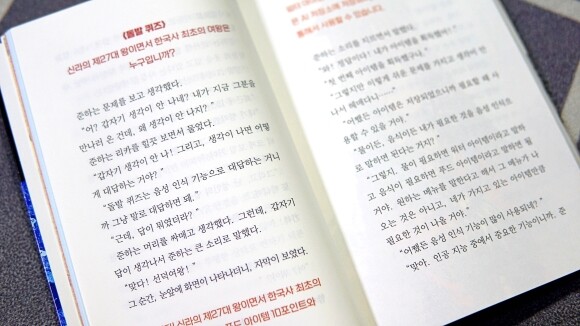 <돌발 퀴즈>
신라의 제27대 왕이면서 한국사 최초의 여왕은
누구입니까?
준하는 문제를 보고 생각했다.
“어? 갑자기 생각이 안 나네? 내가 지금 그분을
만나러 온 건데, 왜 생각이 안 나지?”
준하는 리카를 힐끗 보면서 물었다.
“갑자기 생각이 안 나! 그리고, 생각이 나면 어떻
게 대답하는 거야?”
“돌발 퀴즈는 음성 인식 기능으로 대답하는 거니
까 그냥 말로 대답하면 돼.”
“근데, 답이 뭐였더라?”
준하는 머리를 싸매고 생각했다. 그런데, 갑자기
답이 생각나서 준하는 큰 소리로 말했다.
“맞다! 선덕여왕!”
그 순간, 눈앞에 화면이 나타나더니, 자막이 보였다.
신라의 제27대 왕이면서 한국사 최초의
푸드 아이템 10포인트와
통해서 사용할 수 있습니다.
준하는 소리를 지르면서 말했다.
“와? 정말이다! 내가 아이템을 획득했어!”
“첫 번째 아이템을 획득했구나.”
“그렇지만 이렇게 쉬운 문제를 가지고 생각이 안
나서 헤매다니…….”
“어쨌든 아이템은 저장되었으니까 필요할 때 사
용할 수 있을 거야.”
“물이든, 음식이든 내가 필요한 것을 음성 인식으
로 말하면 된다는 거지?”
“그렇지. 물이 필요하면 워터 아이템이라고 말하
고 음식이 필요하면 푸드 아이템이라고 말하면 될
거야. 원하는 메뉴를 말한다고 해서 그 메뉴가 나
오는 것은 아니고, 내가 가지고 있는 아이템만큼
필요한 것이 나올 거야.”
“어쨌든 음성 인식 기능이 많이 사용되네?”
“맞아. 인공 지능 중에서 중요한 기능이니까. 준